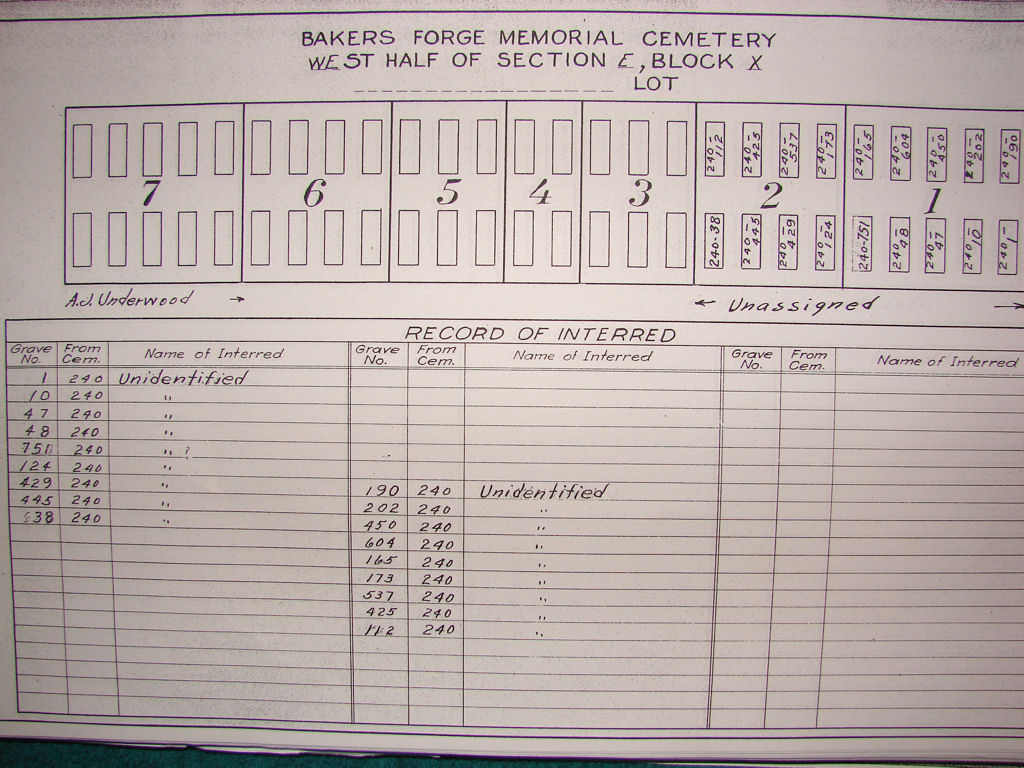 BAKERS FORGE MEMORIAL CEMETERY
WEST HALF OF SECTION E, BLOCK X
LOT
240-112 240-425 240-537 240-173 240-165 240-604 240-450 240-202 240-190
7 6 5 4 3 2 1
240-38 240-445 240-429 240-124 240-751 240-48 240-47 240-10 240-1
A.J. Underwood → ← Unassigned →
RECORD OF INTERRED
Grave No. From Cem. Name of Interred Grave No. From Cem. Name of Interred Grave No. From Cem. Name of Interred
1 240 Unidentified
10 240 "
47 240 "
48 240 "
751 240 " ?
124 240 "
429 240 "
190 240 Unidentified
445 240 "
202 240 "
38 240 "
450 240 "
604 240 "
165 240 "
173 240 "
537 240 "
425 240 "
112 240 "